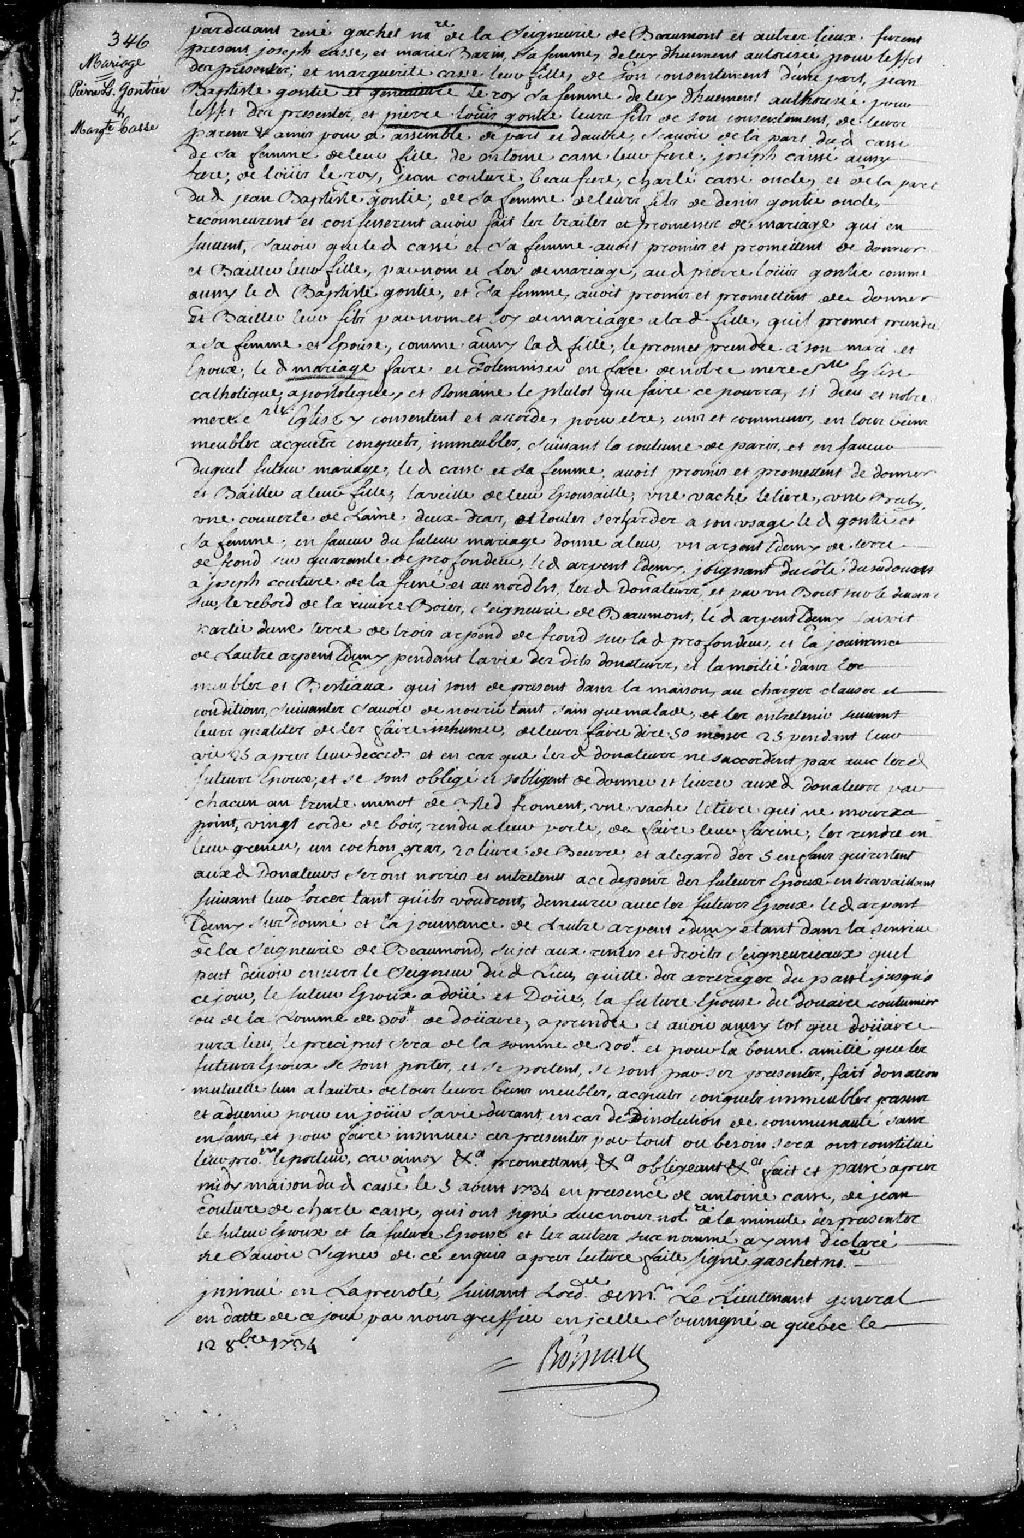 346
Mariage
Pierre Ls. Gontier
&
Margte Casse
pardevant rené gachet nre de la Seigneurie de Beaumont et autres lieux furent
presens joseph Casse, et marie Barin, sa femme, de luy dhuement autorisée pour leffet
des presentes, et marguerite casse leur fille, de son consentement dune part, jean
Baptiste gontie et genevieve Le roy sa femme de luy dhuement authorisée pour
leffet des presentes, et pierre Loüis gontie leurs fils de son consentement, de leurs
parens & amis pour ce assemblé de part et dautre, scavoir de la part du d casse
de sa femme de leur fille de antoine casse leur frere, joseph casse aussy
frere, de loüis le roy, jean couture beau frere, charle casse oncle, et de la part
du d jean Baptiste gontie, de sa femme de leurs fils de denis gontie oncle,
reconneurent et confesserent avoir fait les traites et promesses de mariage qui en
suivent, scavoir que le d casse et sa femme avoit promis et promettent de donner
et Bailler leur fille, par nom et Loy de mariage, au d pierre Loüis gontie comme
aussy le d Baptiste gontie, et sa femme, avoit promis et promettent de donner
et Bailler leur fils par nom et loy de mariage a la d fille, quil promet prendre
a sa femme et Epouse, comme aussy la d fille, le promet prendre a son mari et
Epoux, le d mariage faire et solemniser en face de nôtre mere ste Eglise
catholique apostolique, et Romaine le plutot que faire ce pourra, si dieu et notre
mere ste Eglise y consentent et accorde, pour etre, uns et communs, en tous biens
meubles acquets conquets, immeubles, suivant la coutume de paris, et en faveur
duquel futur mariage, le d casse et sa femme, avoit promis et promettent de donner
et Bailler a leur fille, la veille de leur Epousaille, une vache letiere, une Breby,
une couverte de Laine deux dras, et toutes ses hardes a son usage le d gontie et
sa femme, en faveur du futur mariage donne a leur, un arpent & demy de terre
de frond sur quarante de profondeur, le d arpent & demy, joignant du côté du sudouest
a joseph couture de la finé et au nordest, les d donateurs, et par un Bout sur le devant
sur le rebord de la riviere Boier, seigneurie de Beaumont, le d arpent & demy faisant
partie dune terre de trois arpend de frond sur la d profondeur, et la jouissance
de Lautre arpent & demy pendant la vie des dits donateurs, et la moitié dans les
meubles et Bestiaux qui sont de present dans la maison, au charges clauses et
conditions, suivantes scavoir de nourir tant sain que malade, et les entretenir suivant
leurs qualités de les faire inhumer, de leurs faire dire 50 messes 25 pendant leur
vie 25 apres leur deccès et en cas que les d donateurs ne saccordent pas avec les d
futeurs Epoux, et se sont obligé et sobligent de donner et livrer aux d donateurs par
chacun an trente minot de Bled froment, une vache letiere qui ne mourra
point, vingt corde de bois, rendu a leur porte, de faire leur farine, les rendre en
leur grenier, un cochon gras, 20 livres de Beurre, et a legard des 5 enfans qui restent
aux d Donateurs seront nourris et entretenus a ce depens des futeurs Epoux en travaillant
suivant leur forces tant quils voudront, demeurer avec les futeurs Epoux le d arpent
& demy sus donné et la jouissance de Lautre arpent & demy etant dans la censive
de la Seigneurie de Beaumond, sujet aux rentes et droits seigneuriaux quel
peut devoir envers le Seigneur du d Lieu, quitte des arrerages du passé jusqua
ce jour, le futeur Epoux a doüé et Doüe, la future Epouse du doüaire coutumier
ou de la somme de 300lt de doüaire, a prendre et avoir aussy tot que doüaire
aura lieu, le preciput sera de la somme de 200lt et pour la bonne amitié que les
futeurs Epoux se sont portés, et se portent, se sont par ses presentes, fait donation
mutuelle lun a lautre de tous leurs biens meubles, acquets conquets immeubles presens
et advenir pour en joüir sa vie durant, en cas de Dissolution de communauté sans
enfans, et pour faire insinuer ces presentes par tout ou besoin sera ont constitué
leur pror. le porteur, car ainsy &a promettant &a obligeant &a fait et passé apres
midy maison du d casse le 5 aoust 1734 en presence de antoine casse, de jean
Couture de charle casse, qui ont signé avec nous notre a la minute des presentes
le futeur Epoux et la future Epouse et les autres sus nommé ayans déclaré
ne scavoir signer de ce enquis apres lecture faite signé gaschet nre.
jnsinué en La prevoté, suivant Lorde de Mr. Le Lieutenant general
en datte de ce jour par nous greffier en jcelle soussigné a quebec le
12 8bre 1734
Boisseau